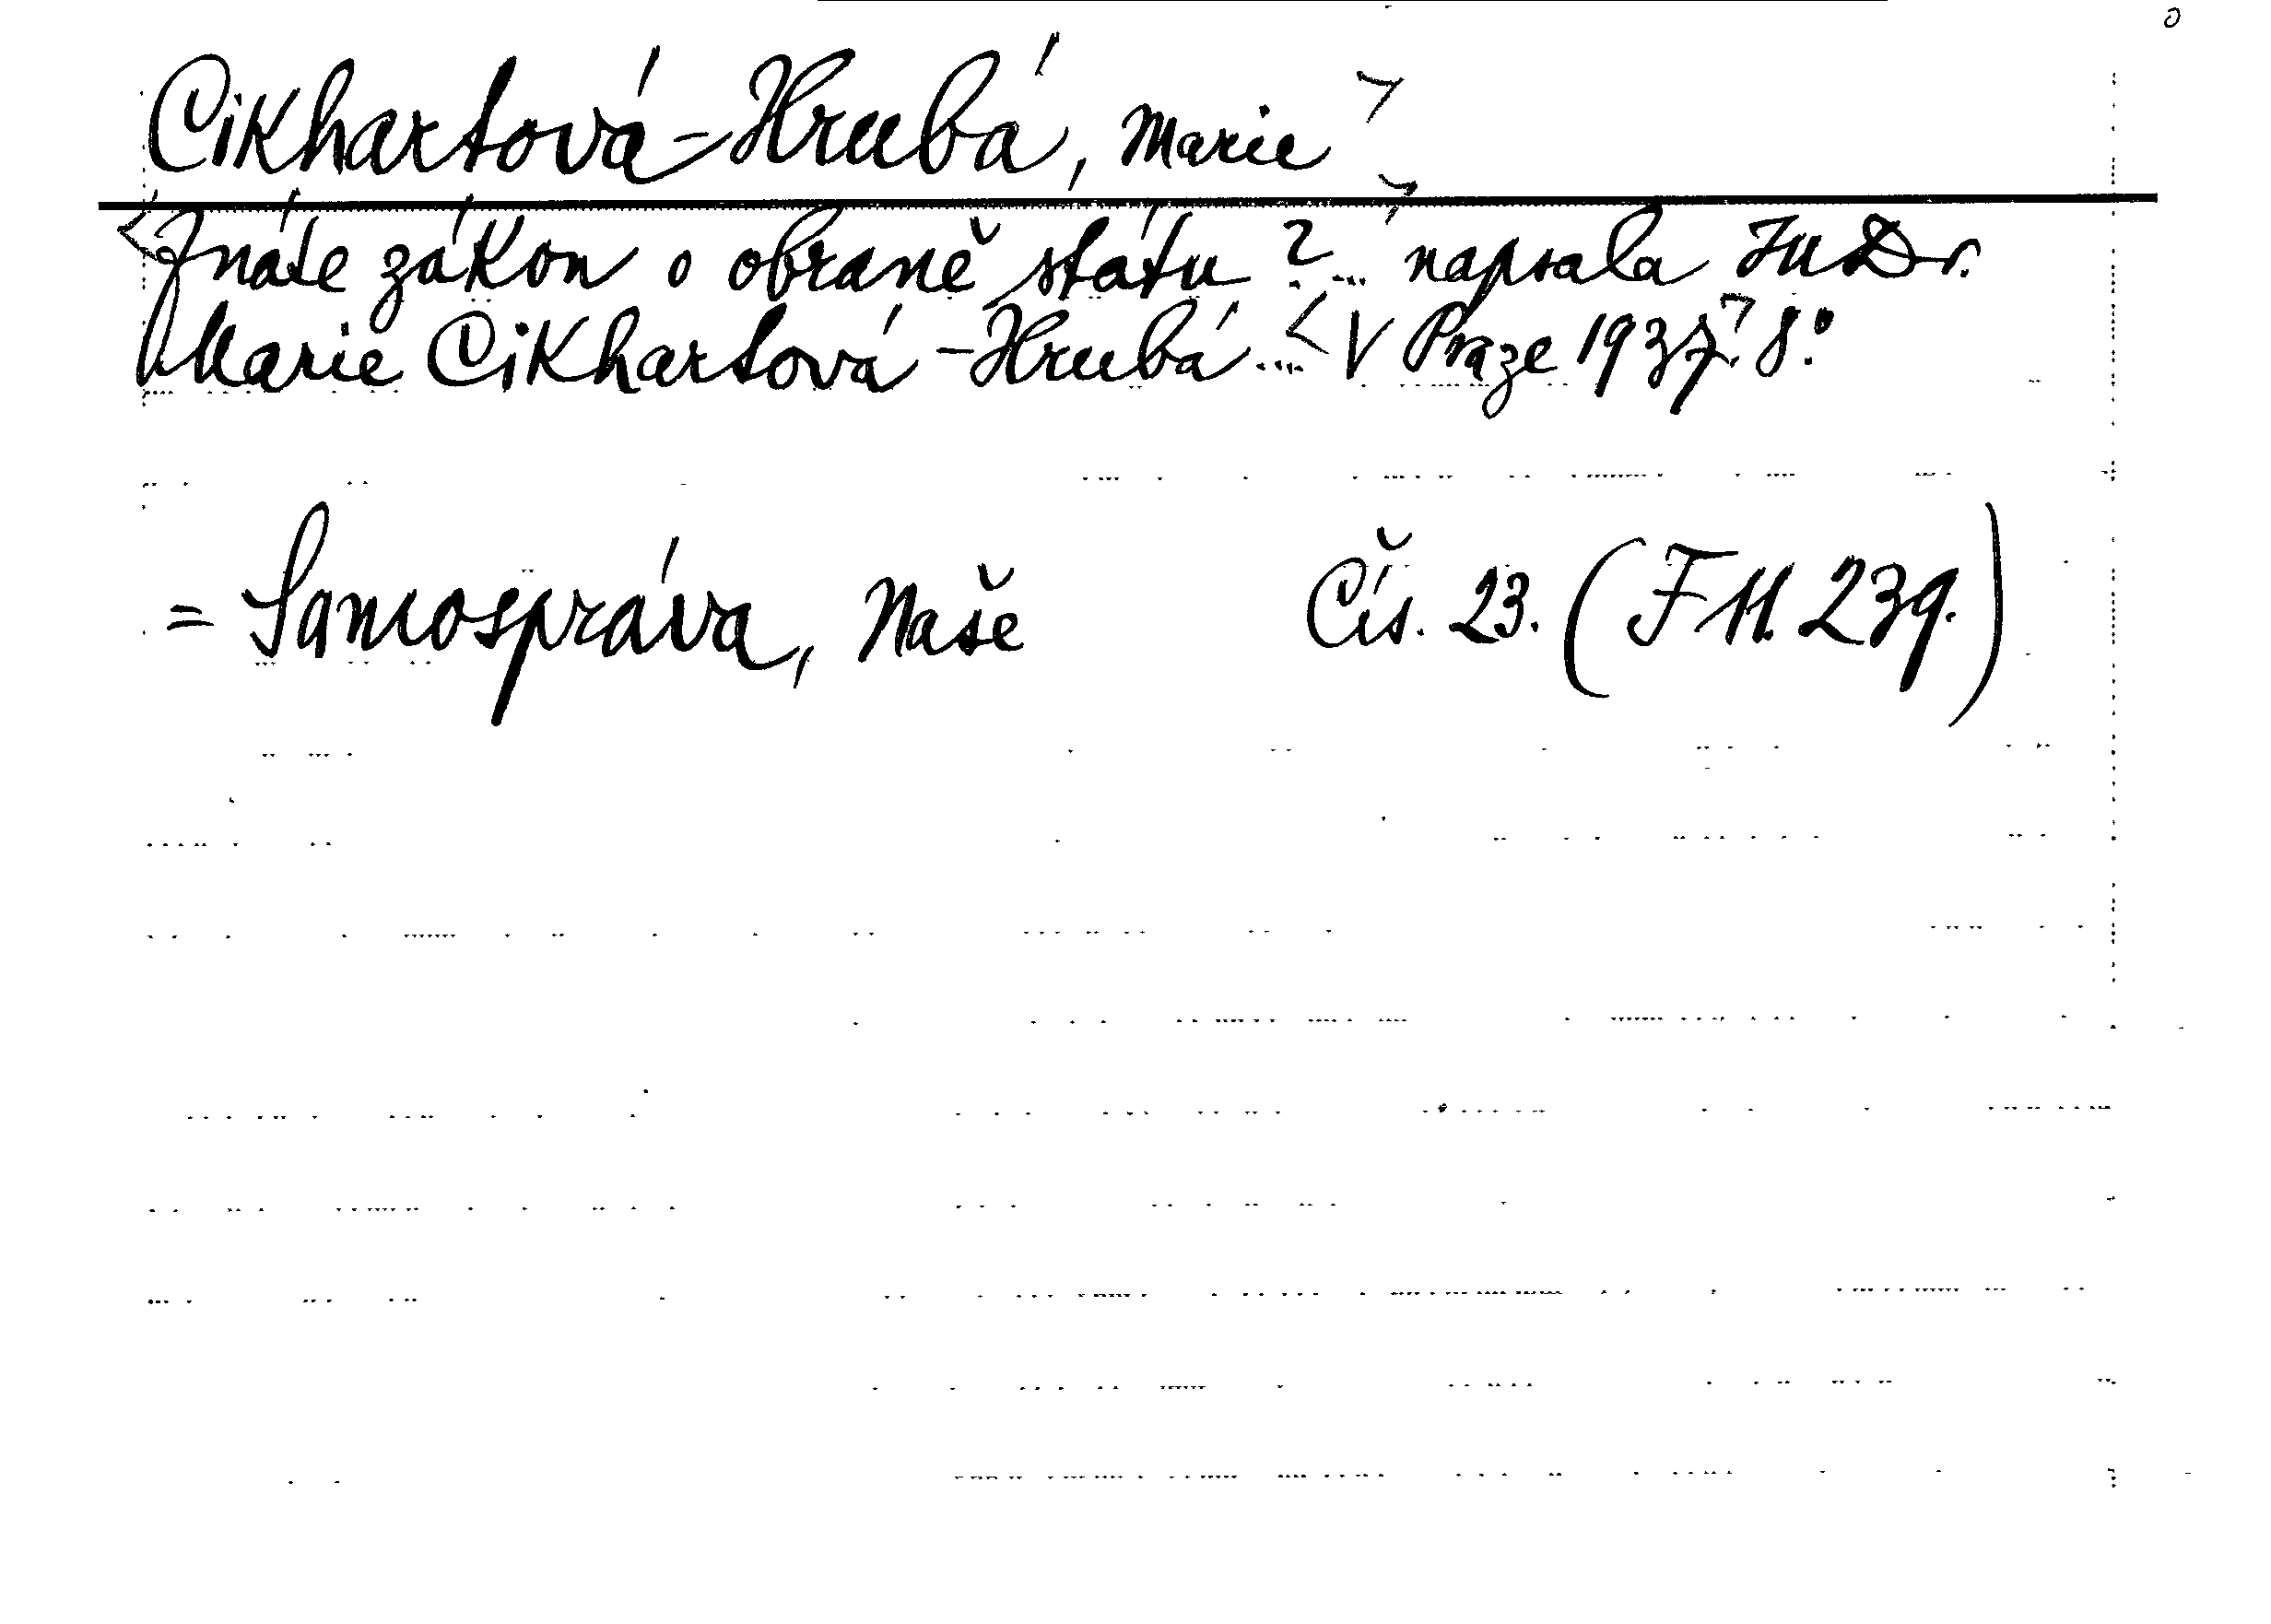 Cikhartová-Hrubá, Marie
Znáte zákon o obraně státu?... napsala JUDr.
Marie Cikhartová-Hrubá... V Praze 1937. 8°.
= Samospráva, Naše Čís. 23. (F 11. 239.)